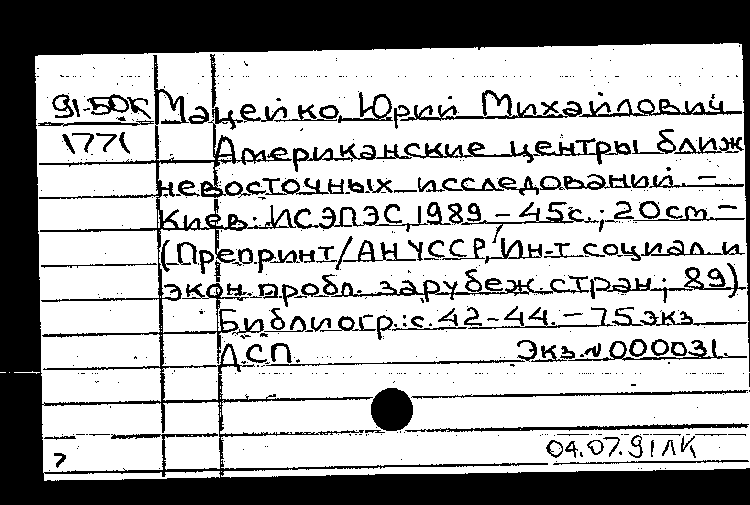 91-50К Мацейко, Юрий Михайлович
1771 Американские центры ближ
невосточных исследований. –
Киев: ИСЭПЭС, 1989, – 45с.; 20 ст –
(Препринт/АН УССР, Ин-т социал и
экон. пробл. зарубеж. стран; 89)
Библиогр.: с. 42-44. – 75 экз
ДСП. Экз. N 000031.
04.07.91 ЛК
7